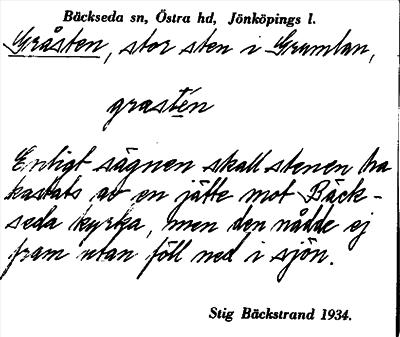 Bäckseda sn, Östra hd, Jönköpings l.
Gråsten, stor sten i Grumlan,
grastén
Enligt sägnen skall stenen ha
kastats av en jätte mot Bäck-
seda kyrka, men den nådde ej
fram utan föll ned i sjön.
Stig Bäckstrand 1934.